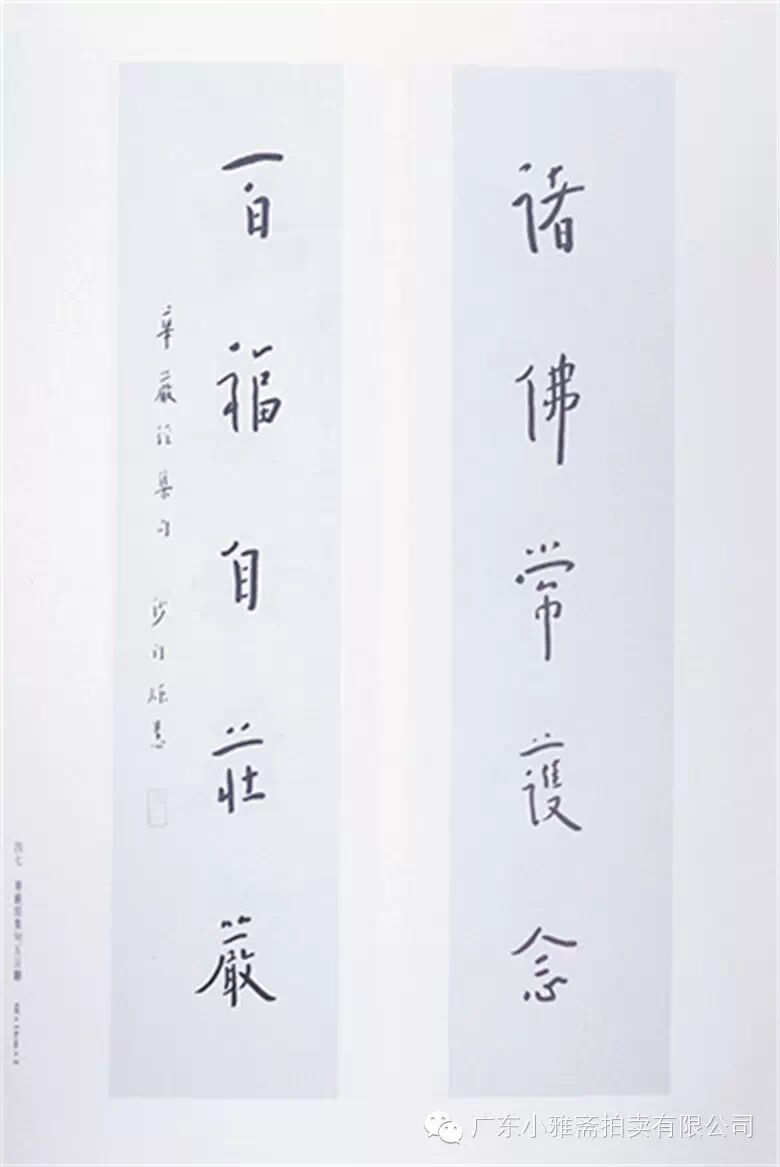 諸佛常護念
百福自莊嚴
華嚴經集句 沙門演音
四七 華嚴經集句五言聯
广东小雅斋拍卖有限公司